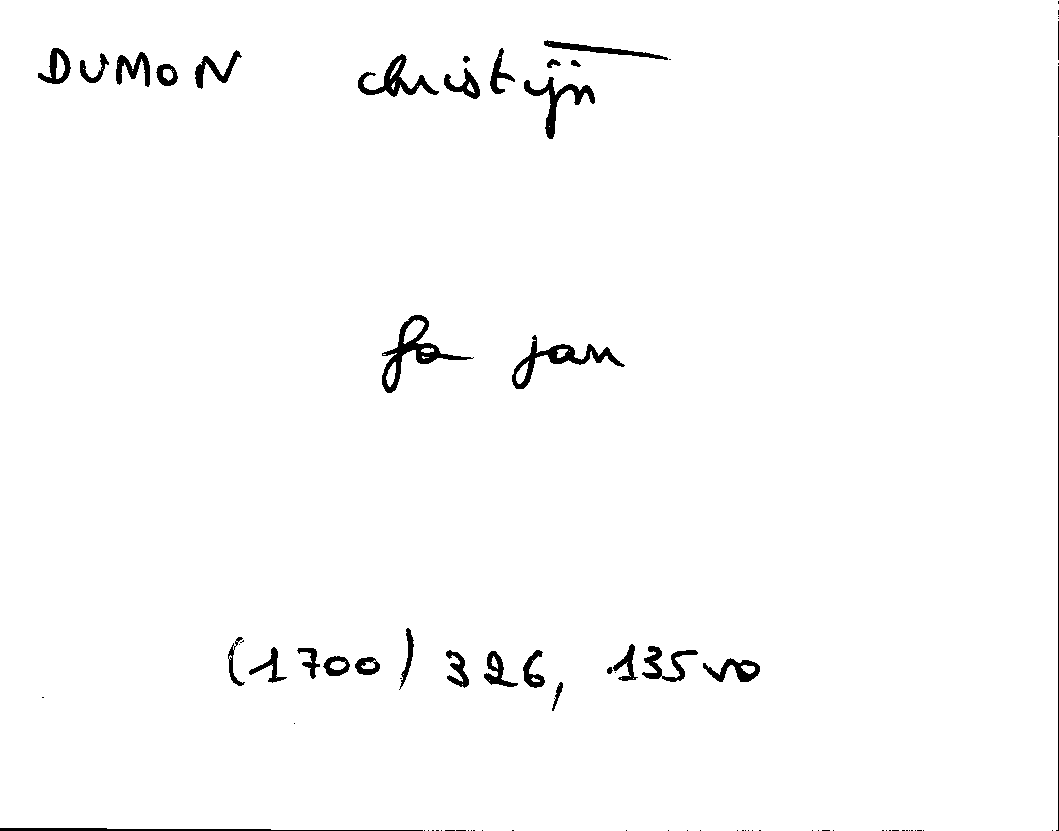 DUMON christijn
fa jan
(1700) 326, 135vo